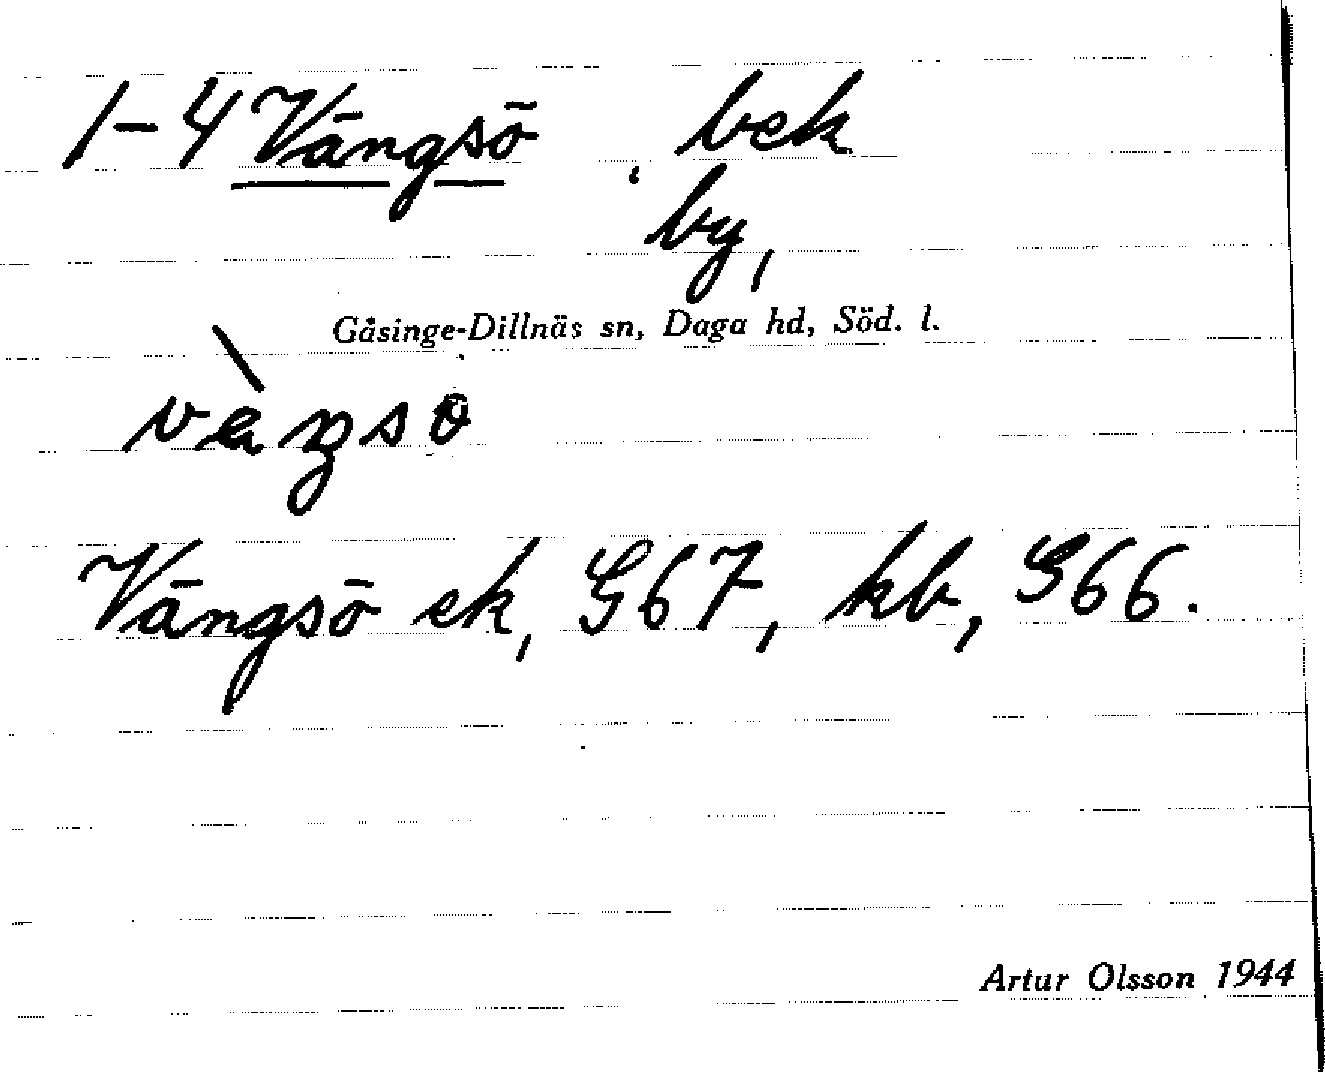 1-4 Vängsö, bek
by,
Gåsinge-Dillnäs sn, Daga hd, Söd. l.
Vängsö ek, G67, kb, G66.
Artur Olsson 1944